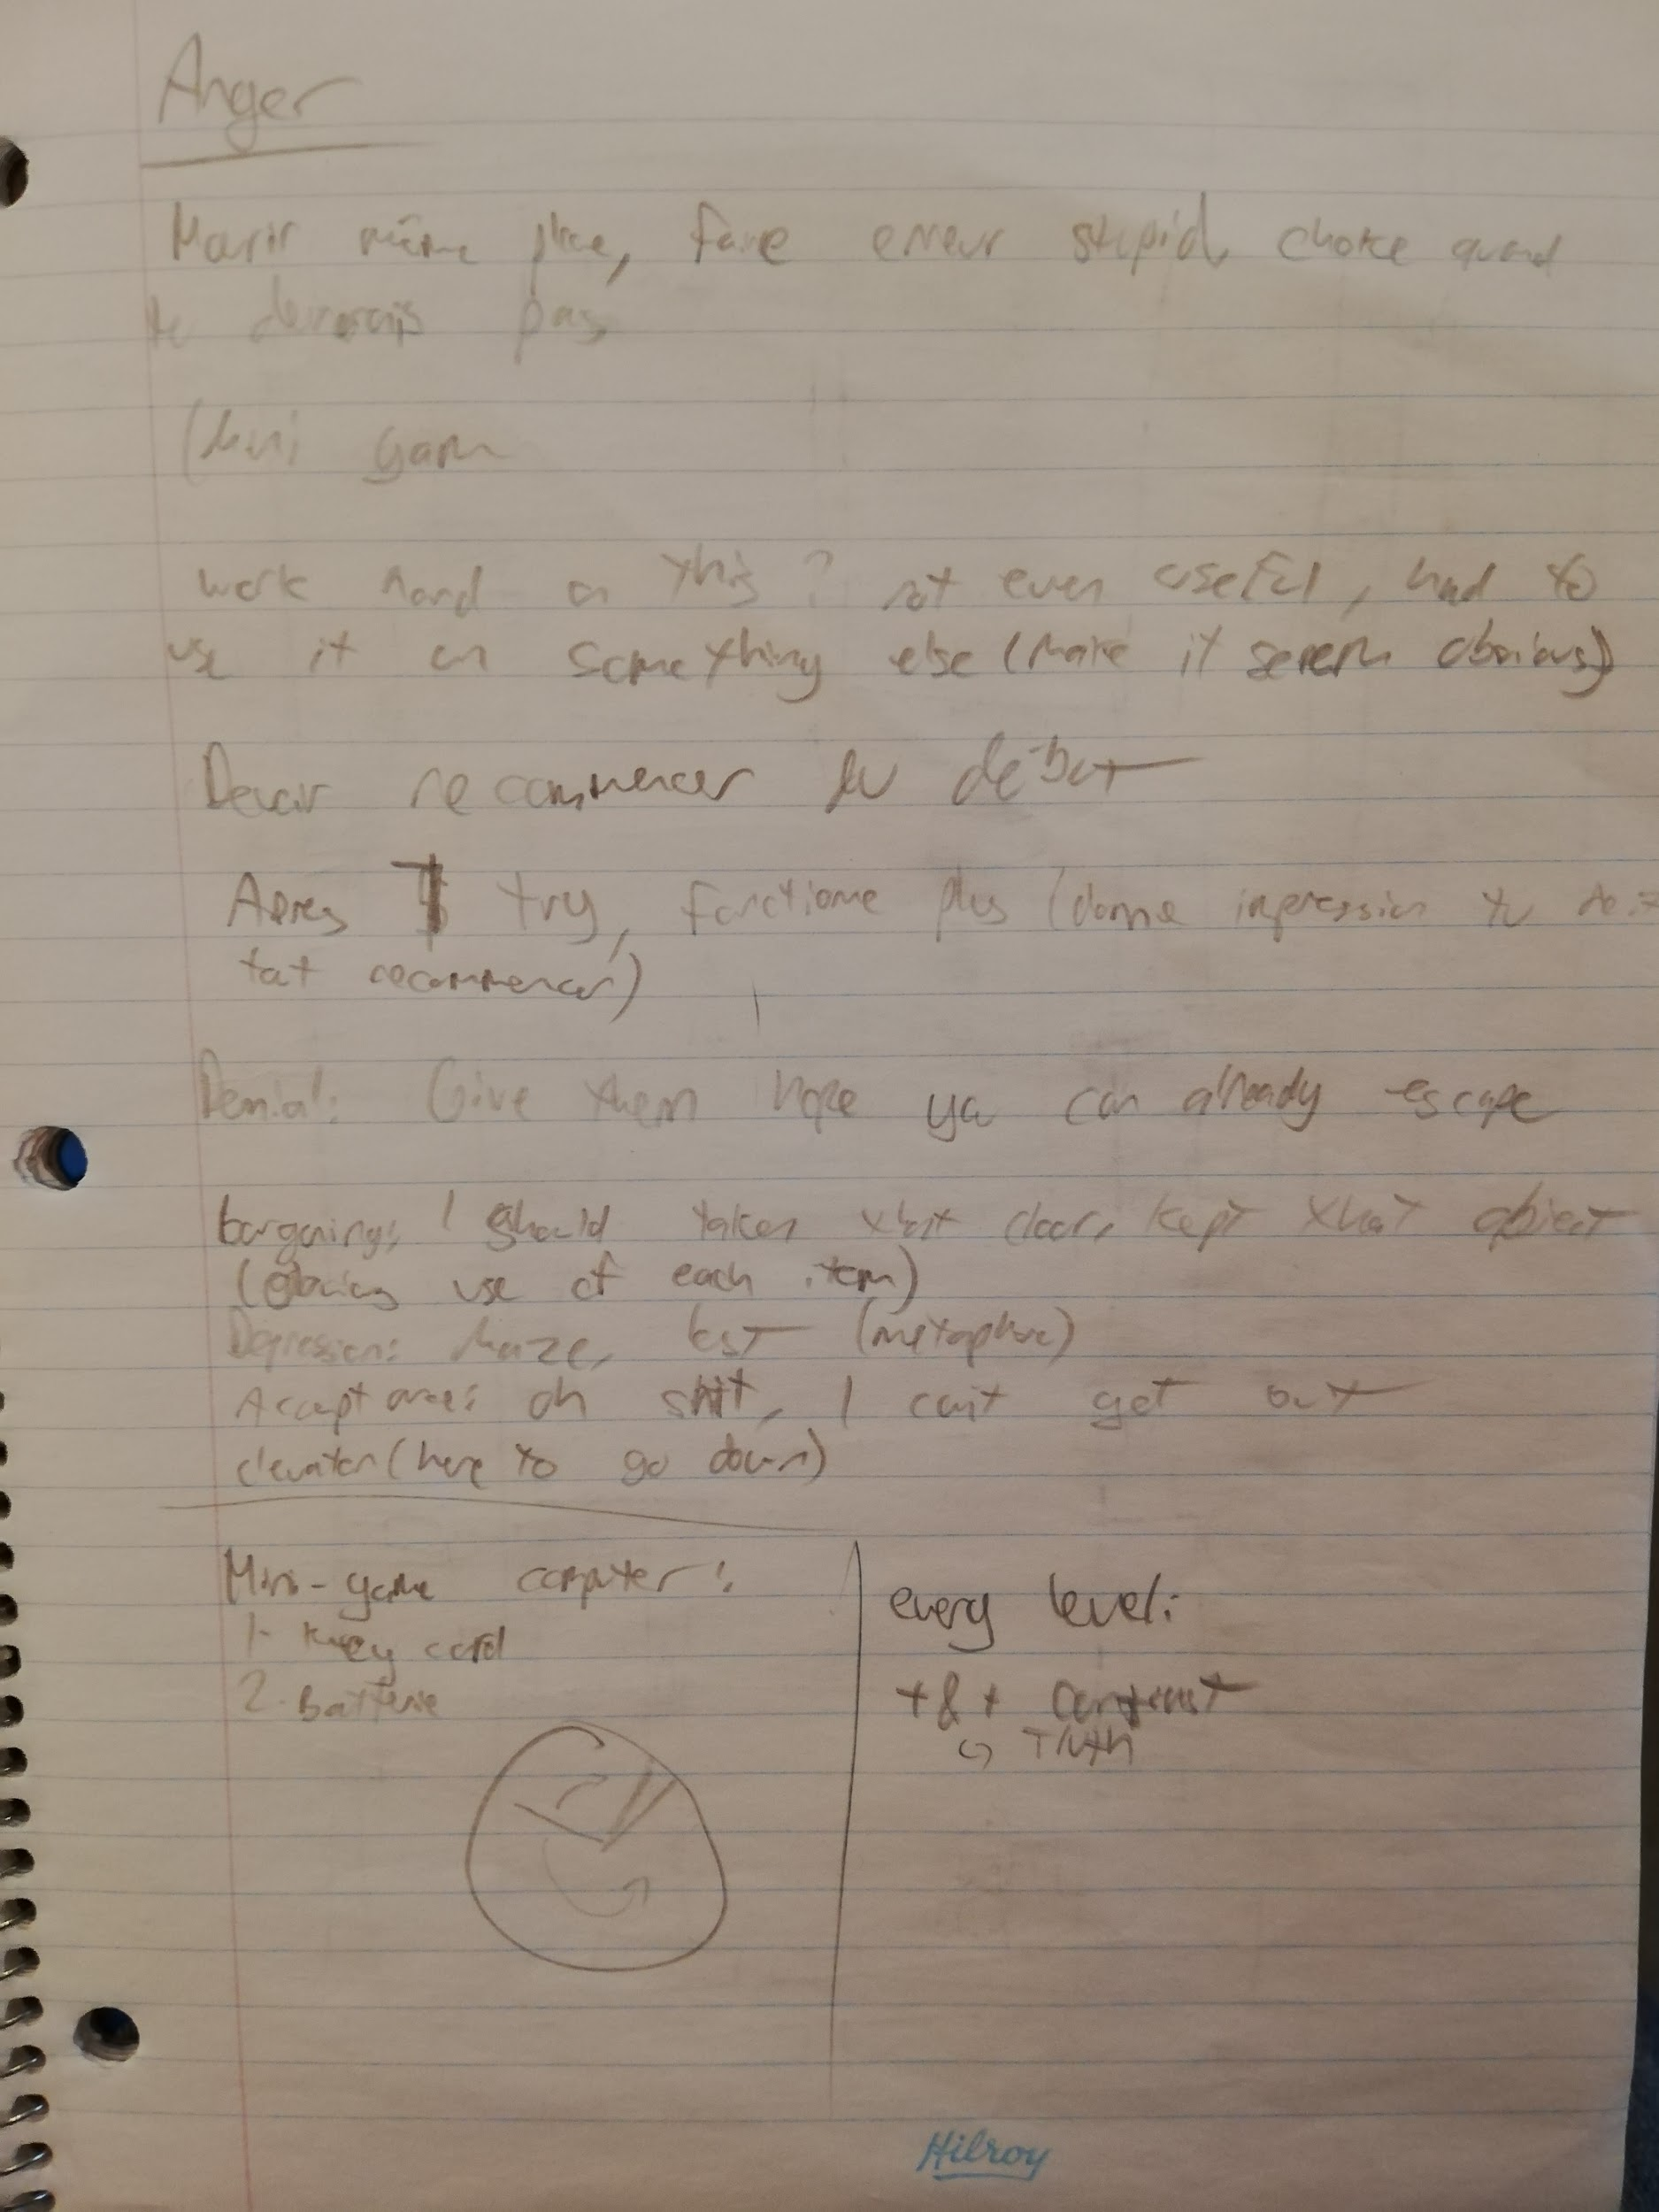 Anger
Mourir même place, faire erreur stupid, choice quand
tu devrais pas
(Mini gam
work hard on this? not even useful, had to
use it on something else (make it seem obvious)
Devoir recommencer du début
Apres try, fonctionne plus (donne impression tu doit
tout recommencer)
Denial: Give them hope ya can already escape
bargaining: I should taken that door, kept that object
(obvious use of each item)
Depression: Maze, lost (metaphore)
Acceptance: oh shit, I can't get out
elevator (here to go down)
Mini-game computer:
1- key card
2. Batterie
every level:
+ & + contrast
↳ Truth
Hilroy